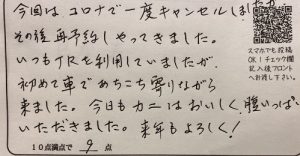 今回は コロナで一度キャンセルしましたが
その後 再予約しやってきました。
いつもJRを利用していましたが、
初めて車であちこち寄りながら
来ました。今日もカニはおいしく、腹いっぱい
いただきました。来年もよろしく!
10点満点で 9 点
スマホでも投稿
OK!チェック欄
記入後フロント
へお渡し下さい。